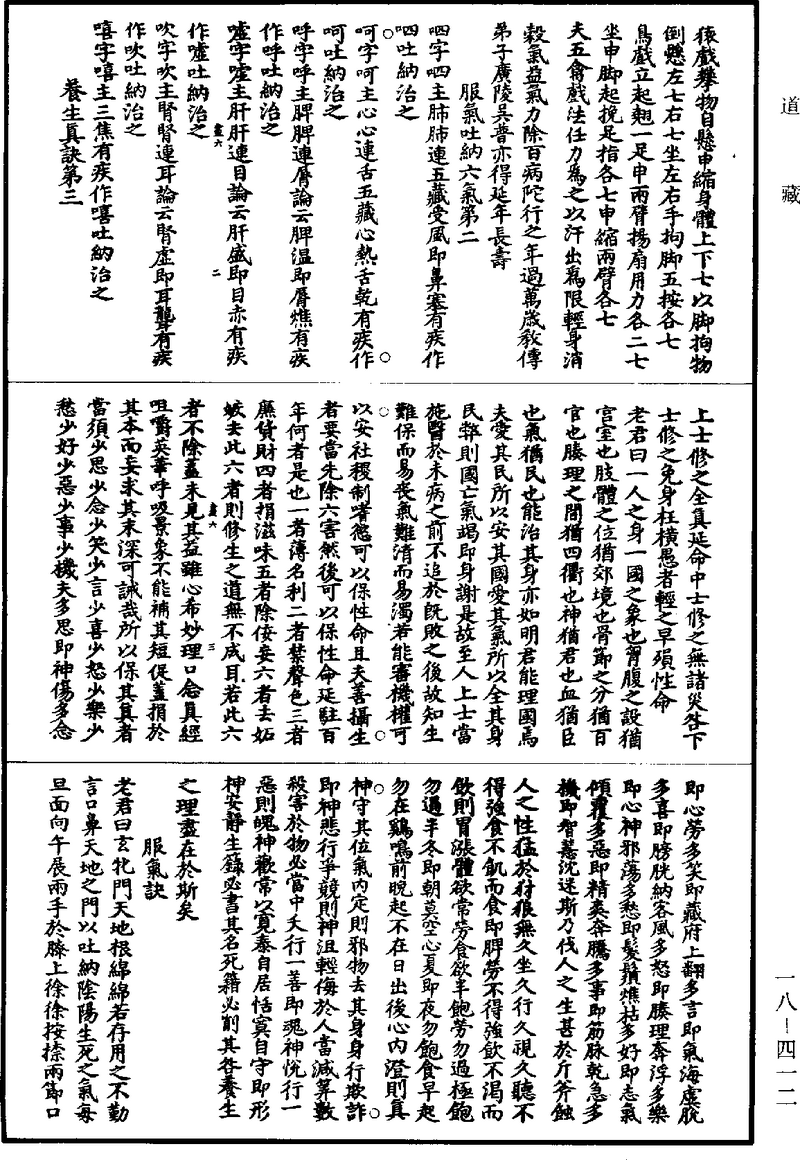 道藏
猿戲攀物自懸申縮身體上下七以脚拘物
倒懸左七右七坐左右手拘脚五按各七
鳥戲立起翹一足申兩臂揚扇用力各二七
坐申脚起挽足指各七申縮兩臂各七
夫五禽戲法任力爲之以汗出爲限輕身消
穀氣益氣力除百病陀行之年過萬歲教傳
弟子廣陵吳普亦得延年長壽
服氣吐納六氣第二
呬字呬主肺肺連五藏受風即鼻塞有疾作
呬吐納治之
呵字呵主心心連舌五藏心熱舌乾有疾作
呵吐納治之
呼字呼主脾脾連脣論云脾温即脣燋有疾
作呼吐納治之
噓字噓主肝肝連目論云肝盛即目赤有疾
盡六 二
作噓吐納治之
吹字吹主腎腎連耳論云腎虛即耳聾有疾
作吹吐納治之
嘻字嘻主三焦有疾作嘻吐納治之
養生真訣第三
上士修之全真延命中士修之無諸災咎下
士修之免身枉橫愚者輕之早殞性命
老君曰一人之身一國之象也胷腹之設猶
宫室也肢體之位猶郊境也骨節之分猶百
官也腠理之間猶四衢也神猶君也血猶臣
也氣猶民也能治其身亦如明君能理國焉
夫愛其民所以安其國愛其氣所以全其身
民弊則國亡氣竭即身謝是故至人上士當
施醫於未病之前不追於旣敗之後故知生
難保而易喪氣難清而易濁若能審機權可
以安社稷制嗜慾可以保性命且夫善攝生
者要當先除六害然後可以保性命延駐百
年何者是也一者薄名利二者禁聲色三者
廉貨財四者捐滋味五者除佞妄六者去妬
嫉去此六者則修生之道無不成耳若此六
盡六 三
者不除蓋未見其益雖心希妙理口念真經
咀嚼英華呼吸景象不能補其短促蓋捐於
其本而妄求其末深可誡哉所以保其真者
當須少思少念少笑少言少喜少怒少樂少
愁少好少惡少事少機夫多思即神傷多念
即心勞多笑即藏府上翻多言即氣海虛脱
多喜即膀胱納客風多怒即腠理奔浮多樂
即心神邪蕩多愁即髮鬚燋枯多好即志氣
傾覆多惡即精爽奔騰多事即筋脉乾急多
機即智慧沈迷斯乃伐人之生甚於斤斧蝕
人之性猛於豺狼無久坐久行久視久聽不
得強食不飢而食即脾勞不得強飲不渴而
飲則胃漲體欲常勞食欲半飽勞勿過極飽
勿過半冬即朝莫空心夏即夜勿飽食早起
勿在鷄鳴前晚起不在日出後心内澄則真
神守其位氣内定則邪物去其身身行欺詐
即神悲行爭競則神沮輕侮於人當減算數
殺害於物必當中夭行一善即魂神悦行一
惡則魄神歡常以寬泰自居恬寞自守即形
神安靜生籙必書其名死籍必削其咎養生
之理盡在於斯矣
服氣訣
老君曰玄牝門天地根綿綿若存用之不勤
言口鼻天地之門以吐納陰陽生死之氣每
旦面向午展兩手於膝上徐徐按捺兩節口
一八-四一二